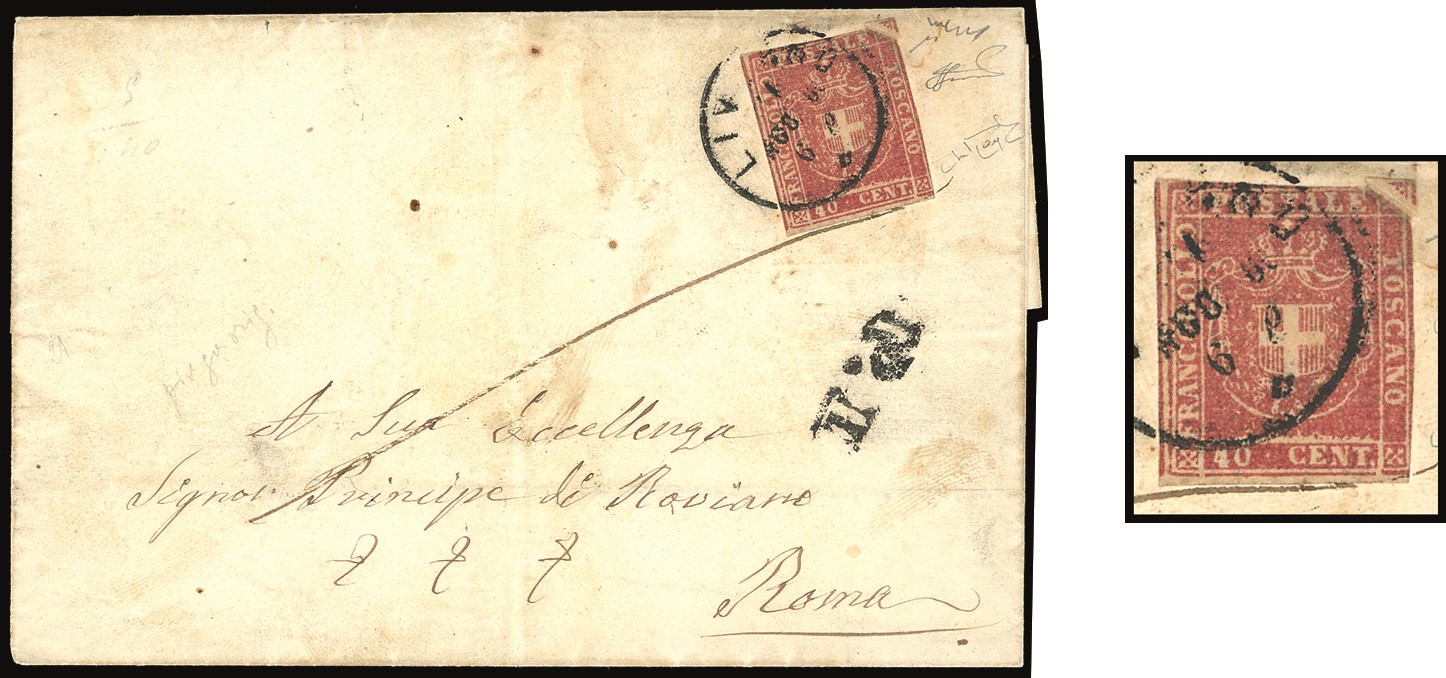 FRANCOBOLLO POSTALE TOSCANO
40 CENT.
LIV
P.D.
piega orig.
A Sua Eccellenza
Signor Principe di Roviano
Roma
FRANCOBOLLO POSTALE TOSCANO
40 CENT.